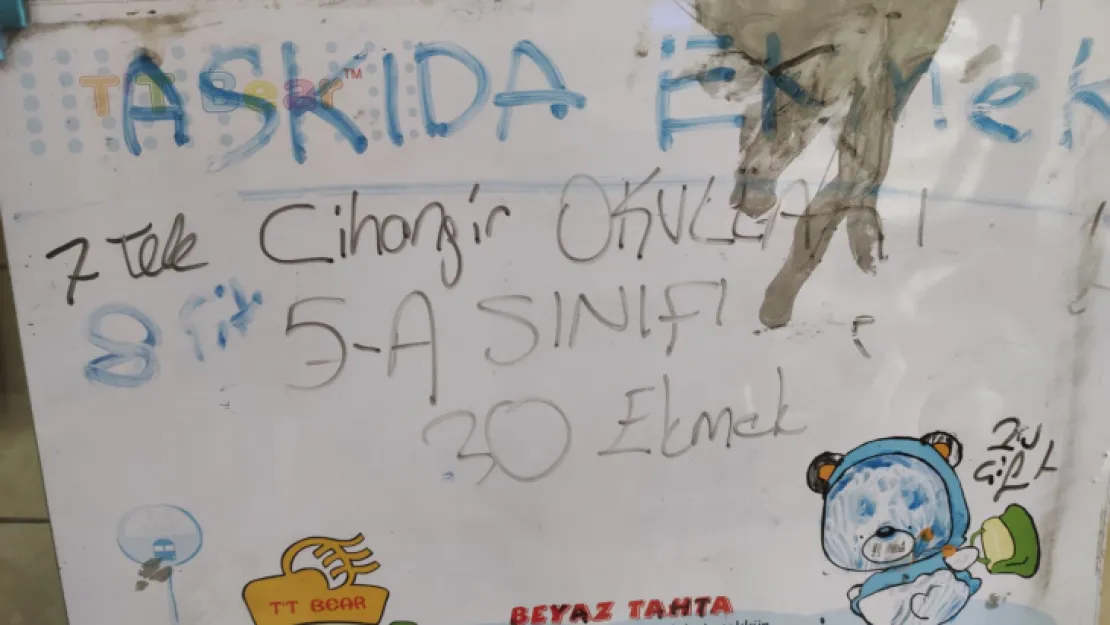 TT Bear™
ASKIDA Ekmek
7 Tek Cihangir OKULLARI
8 Çift 5-A SINIFI
30 Ekmek
TT BEAR
BEYAZ TAHTA